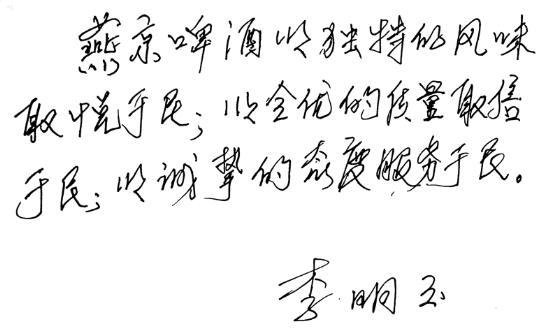 燕京啤酒以独特的风味
取悦于民；以全优的质量取信
于民；以诚挚的态度服务于民。
李明玉